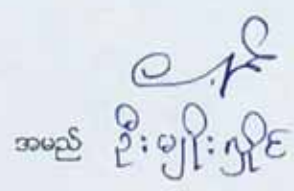 အမည် ဦးမျိုးလှိုင်